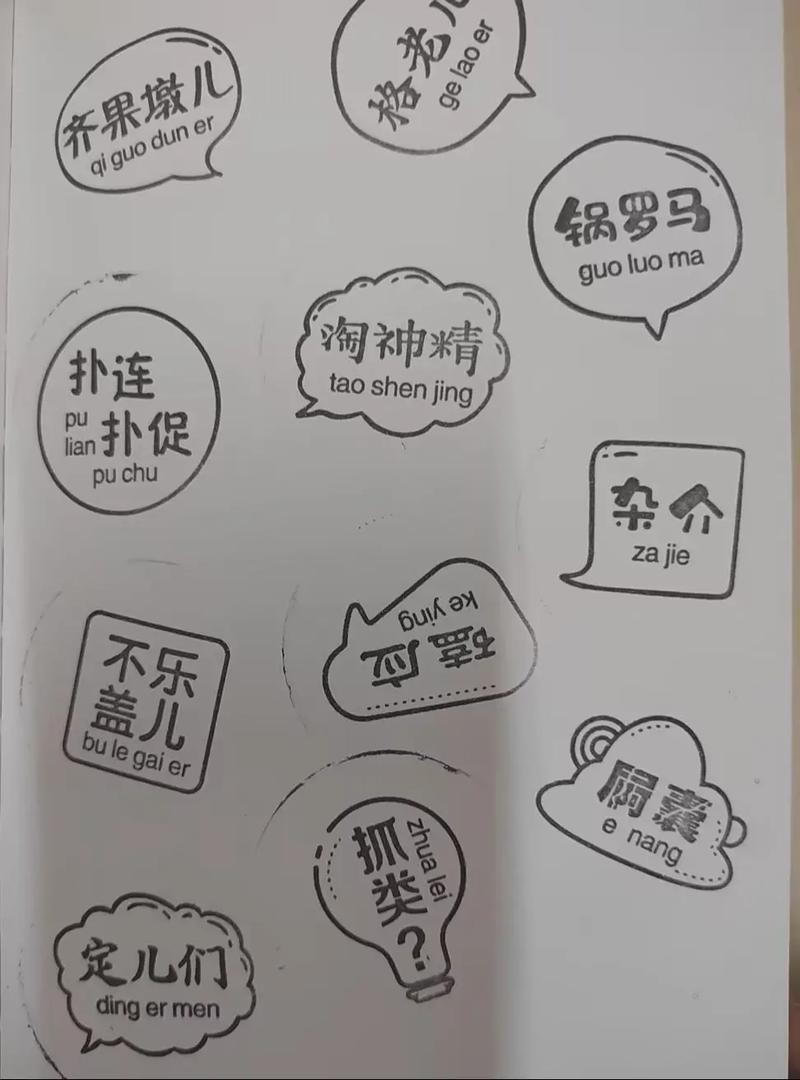 齐果墩儿
qi guo dun er
格老儿
ge lao er
锅罗马
guo luo ma
淘神精
tao shen jing
扑连
pu
lian 扑促
pu chu
杂介
za jie
磕应
ke ying
不乐
盖儿
bu le gai er
屙囊
e nang
抓类？
zhua lei
定儿们
ding er men